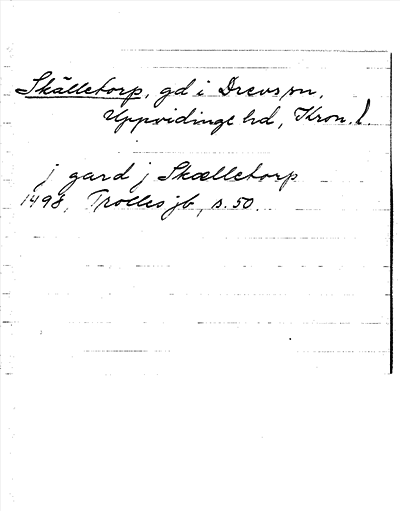 Skälletorp, gd i Drevs sn,
Uppvidinge hd, Kron. l.
j gard j Skælletorp
1498, Trolles jb, s. 50.